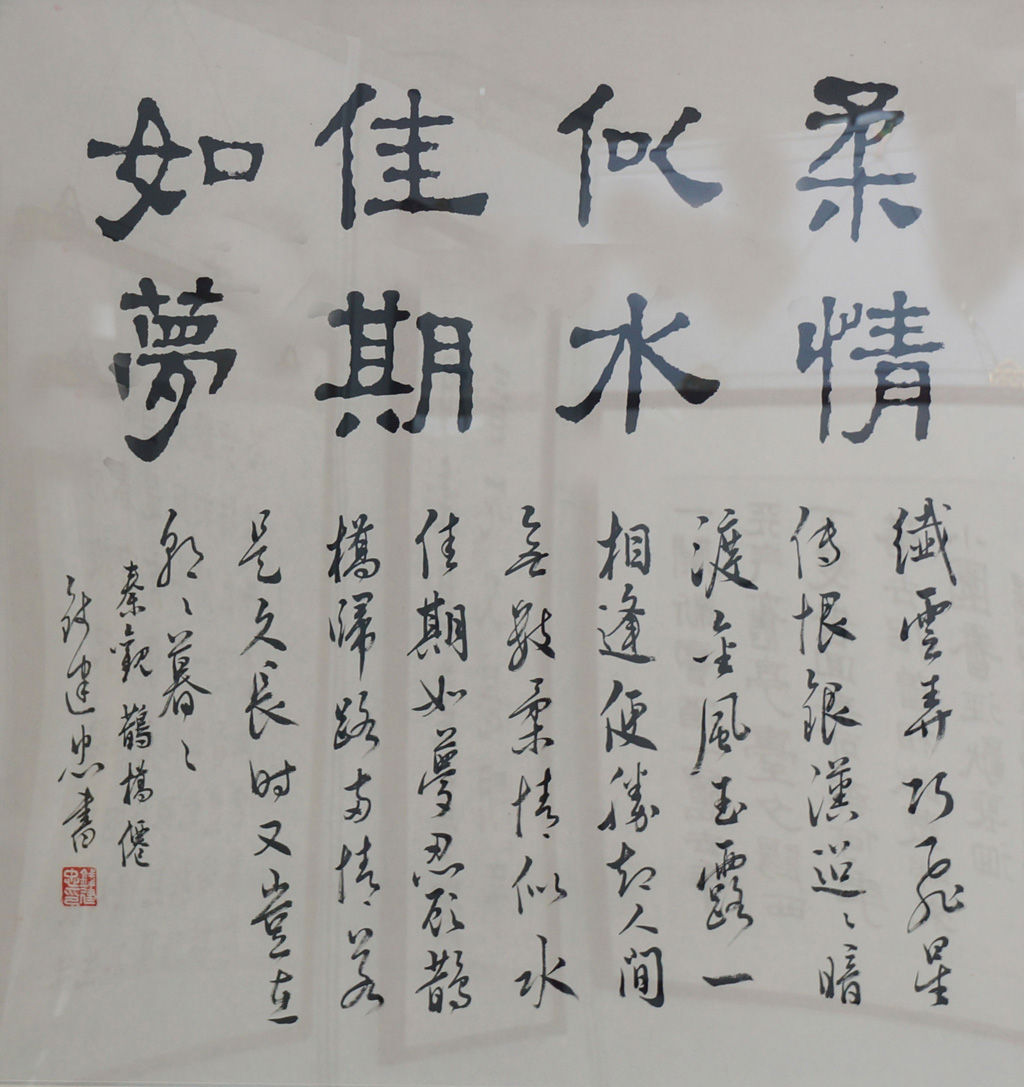 柔情
似水
佳期
如夢
纖雲弄巧飛星
傳恨銀漢迢〻暗
渡金風玉露一
相逢便勝却人間
無數柔情似水
佳期如夢忍顧鵲
橋歸路两情若
是久長时又豈在
朝〻暮〻
秦觀鵲橋僊
錢建忠書